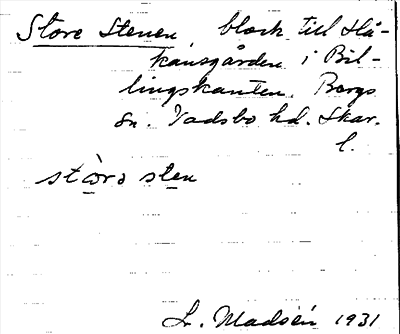 Store Stenen, block till Hå-
kansgården i Bil-
lingskanten. Bergs
sn. Vadsbo hd. Skar.
l.
stɷrə sten
Lr. Madsén 1931